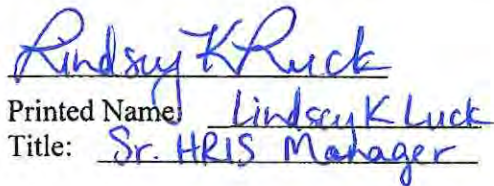 Lindsay K Luck
Printed Name: Lindsay K Luck
Title: Sr. HRIS Manager